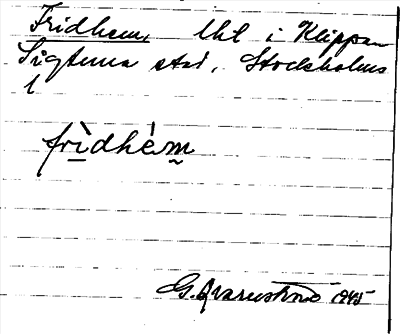 Fridhem, lht i Klippan
Sigtuna stad, Stockholms
l
frìdhém
G. Qvarnström 1945